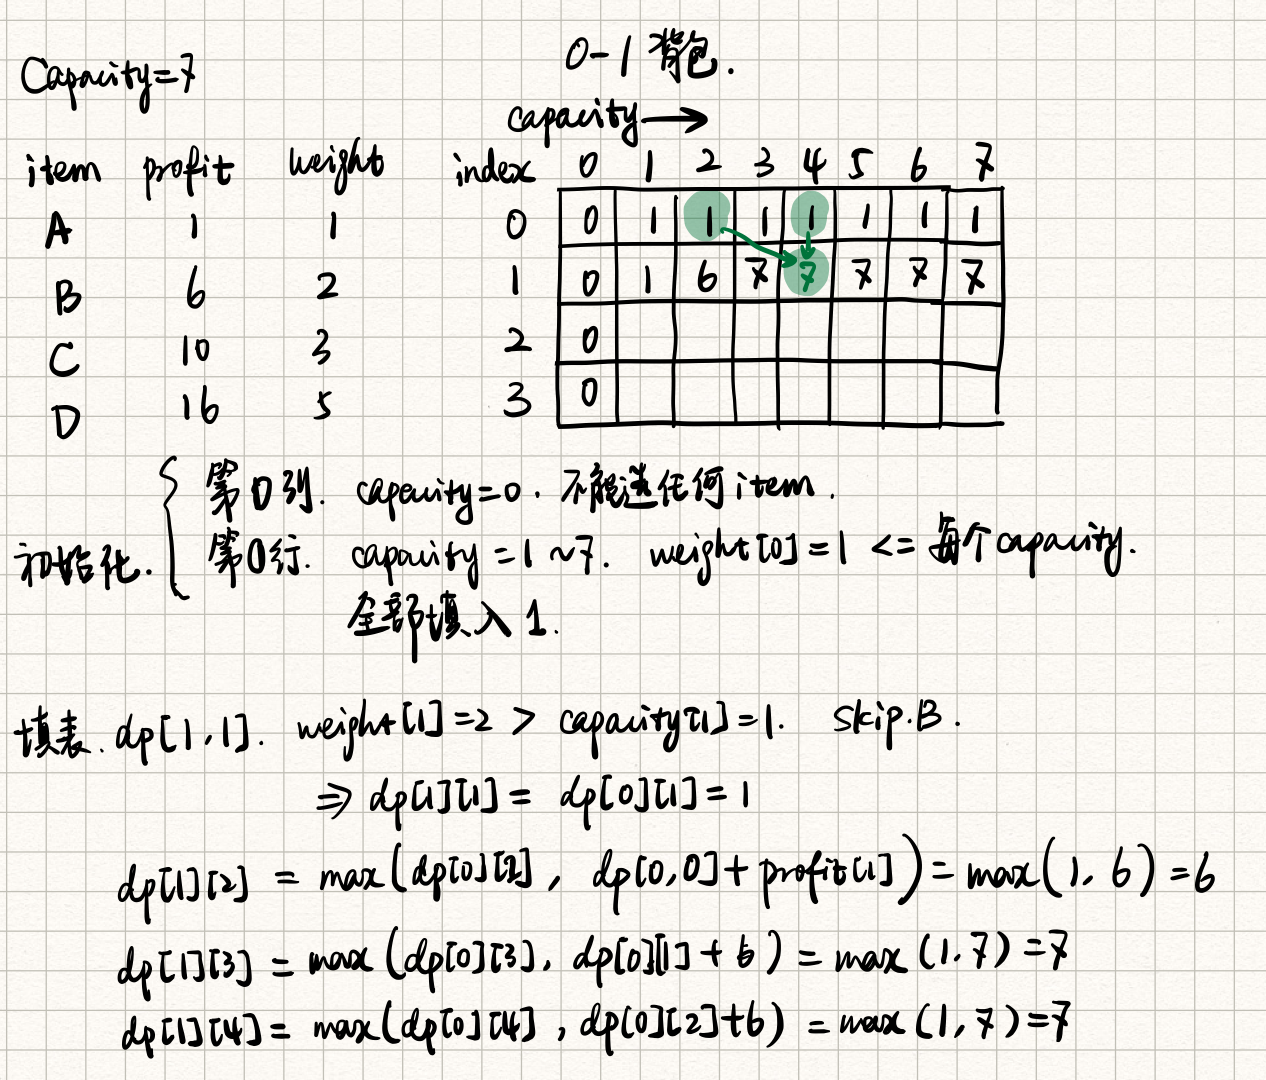 0-1 背包.
Capacity=7
capacity→
item profit weight index 0 1 2 3 4 5 6 7
A 1 1 0 0 1 1 1 1 1 1 1
B 6 2 1 0 1 6 7 7 7 7 7
C 10 3 2 0
D 16 5 3 0
初始化.
第0列. capacity=0. 不能选任何item.
第0行. capacity=1~7. weight[0]=1 <= 每个capacity.
全部填入1.
填表. dp[1,1]. weight[1]=2 > capacity[1]=1. skip.B.
⇒ dp[1][1] = dp[0][1]=1
dp[1][2] = max(dp[0][2], dp[0,0]+profit[1])=max(1,6)=6
dp[1][3] = max(dp[0][3], dp[0][1]+6)=max(1,7)=7
dp[1][4]= max(dp[0][4], dp[0][2]+6)=max(1,7)=7